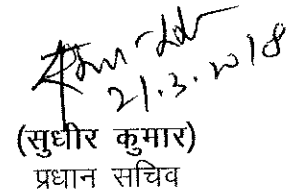 21.3.2018
(सुधीर कुमार)
प्रधान सचिव